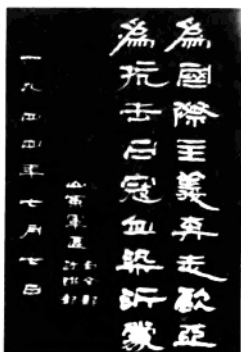 為國際主義奔走歐亞
為抗击日寇血染沂蒙
一九四四年七月七日